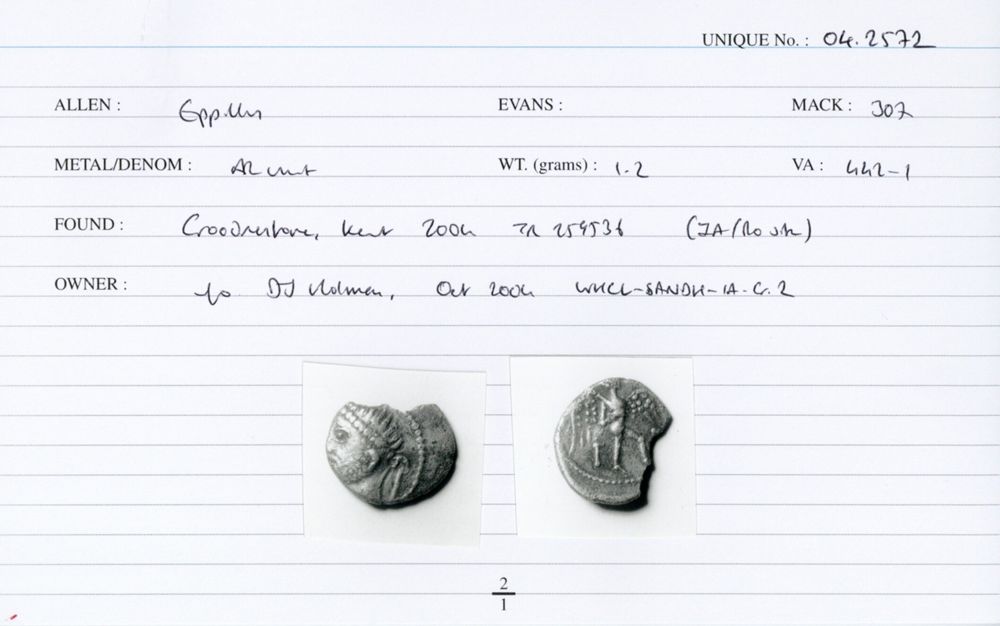 UNIQUE No. : 04.2572
ALLEN : Eppillus EVANS : MACK : 307
METAL/DENOM : AR unit WT. (grams) : 1.2 VA : 442-1
FOUND : Goodnestone, Kent 2004 TR 254536 (IA/Ro site)
OWNER : D J Holman, Oct 2004 WHCL-SANDH-IA-C.2
2
1